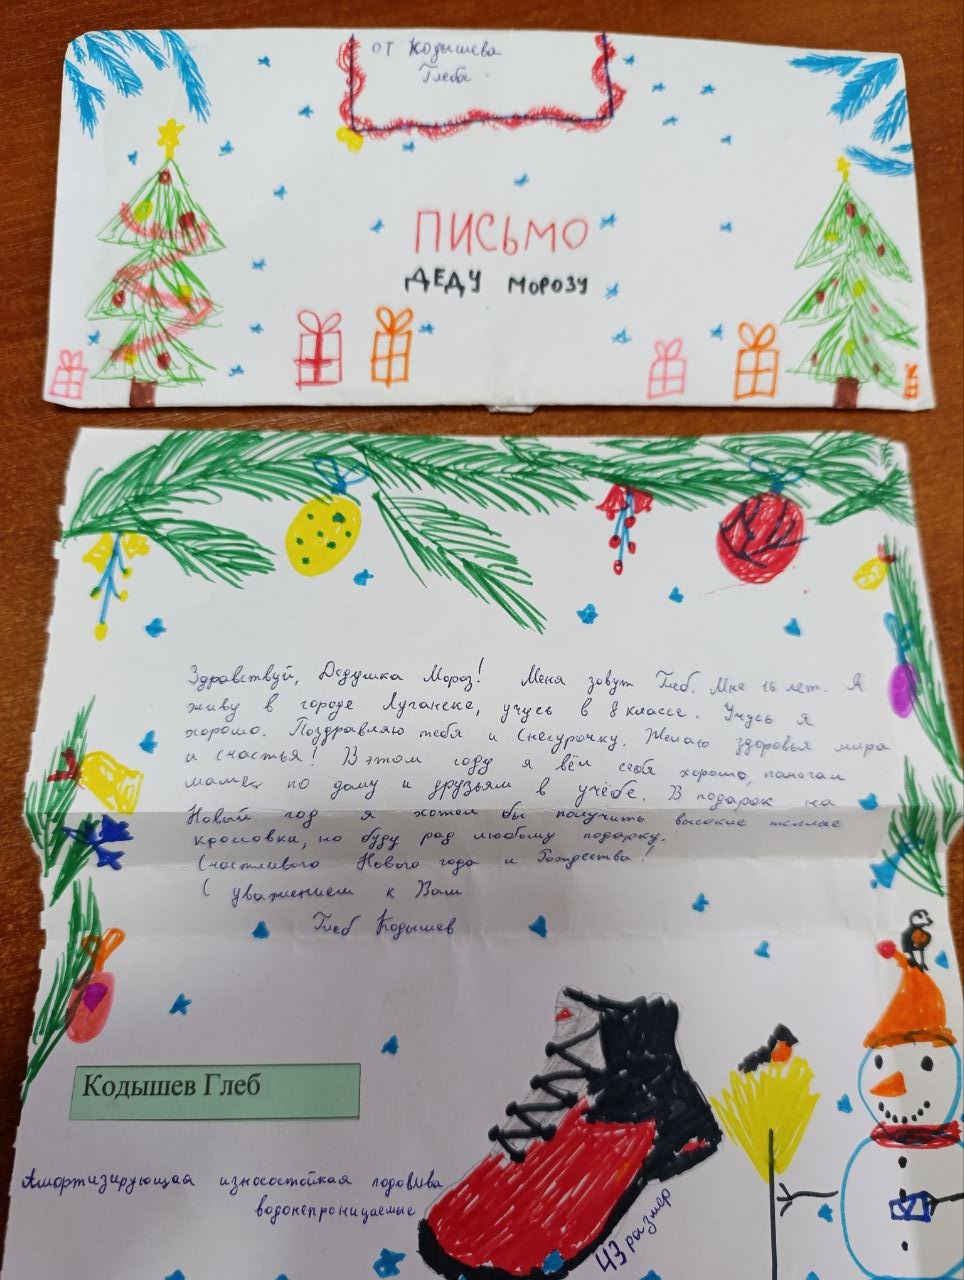 от Кодышева
Глеба
ПИСЬМО
ДЕДУ МОРОЗУ
Здравствуй, Дедушка Мороз! Меня зовут Глеб. Мне 16 лет. Я
живу в городе Луганске, учусь в 8 классе. Учусь я
хорошо. Поздравляю тебя и Снегурочку. Желаю здоровья мира
и счастья! В этом году я вёл себя хорошо, помогал
мамец по дому и друзьям в учёбе. В подарок на
Новый год я хотел бы получить высокие тёплые
кроссовки, но буду рад любому подарку.
Счастливого Нового года и Рождества!
С уважением к Вам
Глеб Кодышев
Кодышев Глеб
Амортизирующая износостойкая подошва
водонепроницаемые
43 размер